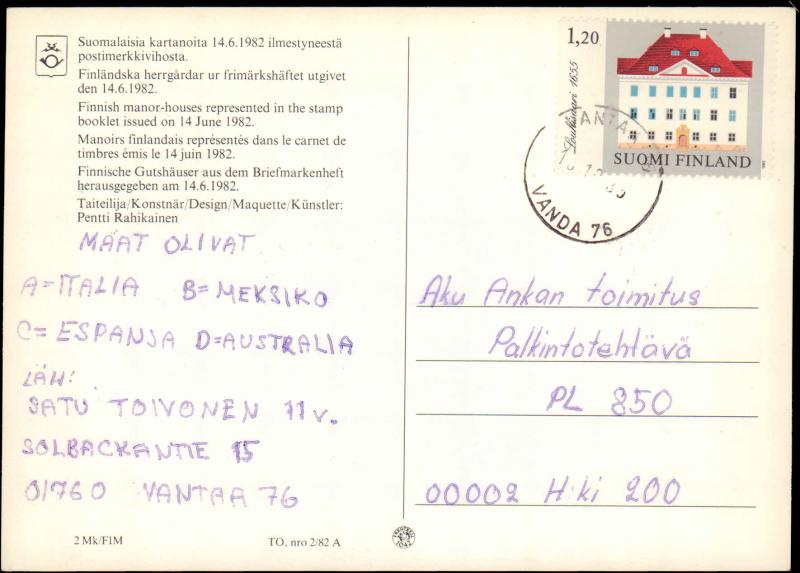 Suomalaisia kartanoita 14.6.1982 ilmestyneestä
postimerkkivihosta.
Finländska herrgårdar ur frimärkshäftet utgivet
den 14.6.1982.
Finnish manor-houses represented in the stamp
booklet issued on 14 June 1982.
Manoirs finlandais représentés dans le carnet de
timbres émis le 14 juin 1982.
Finnische Gutshäuser aus dem Briefmarkenheft
herausgegeben am 14.6.1982.
Taiteilija/Konstnär/Design/Maquette/Künstler:
Pentti Rahikainen
MAAT OLIVAT
A=ITALIA B=MEKSIKO
C=ESPANJA D=AUSTRALIA
LÄH:
SATU TOIVONEN 11 v.
SOLBACKANTIE 15
01760 VANTAA 76
2 Mk/FIM
TO, nro 2/82 A
1,20
Louhisaari 1655
SUOMI FINLAND
VANDA 76
Aku Ankan toimitus
Palkintotehtävä
PL 850
00002 H:ki 200